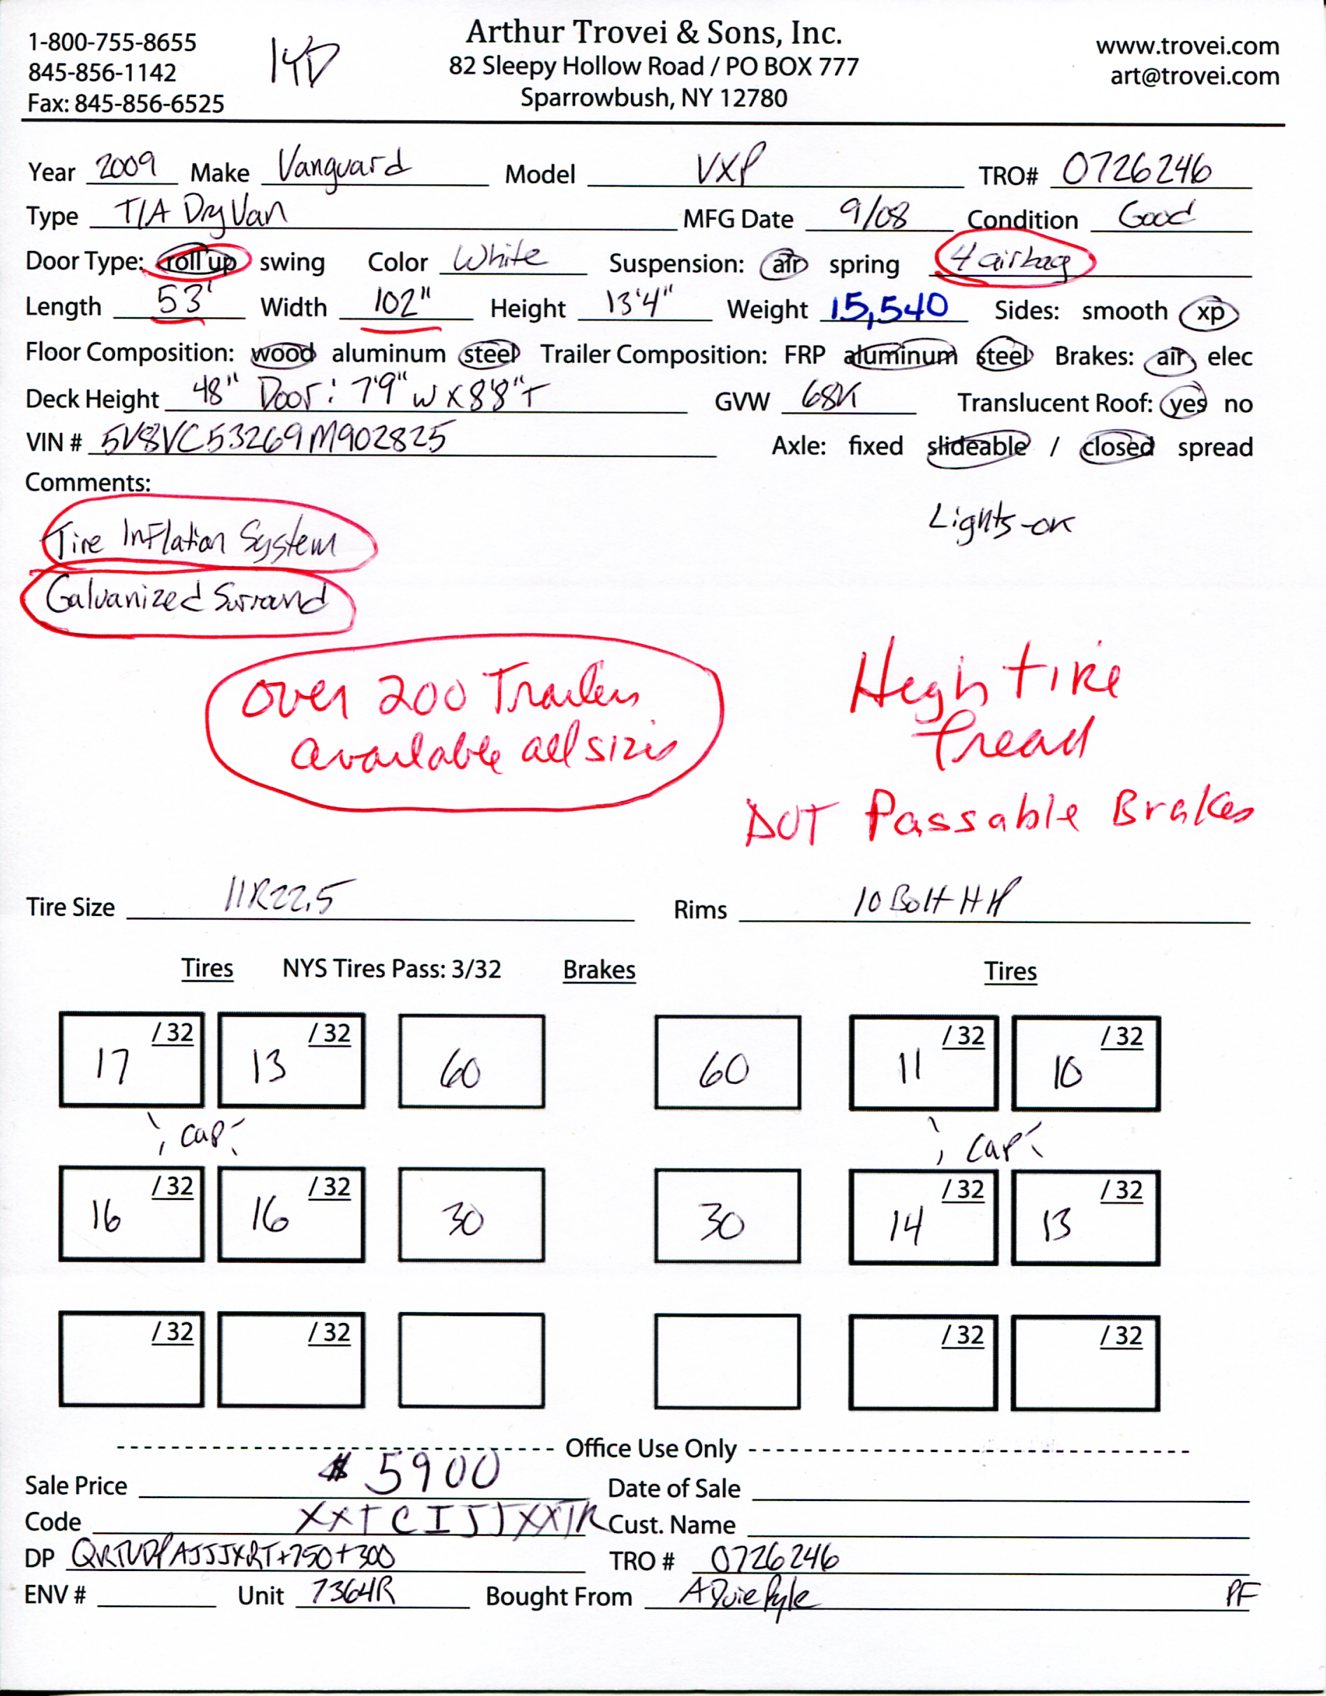 1-800-755-8655
845-856-1142
Fax: 845-856-6525
Arthur Trovei & Sons, Inc.
82 Sleepy Hollow Road / PO BOX 777
Sparrowbush, NY 12780
www.trovei.com
art@trovei.com
Year 2009 Make Vanguard Model VXP TRO# 0726246
Type T/A Dry Van MFG Date 9/08 Condition Good
Door Type: roll up swing Color White Suspension: air spring 4 airbag
Length 53' Width 102" Height 13'4" Weight 15,540 Sides: smooth xp
Floor Composition: wood aluminum steel Trailer Composition: FRP aluminum steel Brakes: air elec
Deck Height 48" Door: 7'9" W X 8'8" T GVW 68K Translucent Roof: yes no
VIN # 5V8VC53269M902825 Axle: fixed slideable / closed spread
Comments:
Lights-ok
Tire Inflation System
Galvanized Surround
over 200 Trailers
available all sizes
High tire
Tread
DOT Passable Brakes
Tire Size 11R22.5 Rims 10 Bolt HP
Tires NYS Tires Pass: 3/32 Brakes Tires
17 /32 13 /32 60 60 11 /32 10 /32
cap cap
16 /32 16 /32 30 30 14 /32 13 /32
/32 /32 /32 /32
Office Use Only
Sale Price $5900 Date of Sale
Code XXTCIJJXXTR Cust. Name
DP +750+300 TRO # 0726246
ENV # Unit 7364R Bought From A Duie Pyle PF